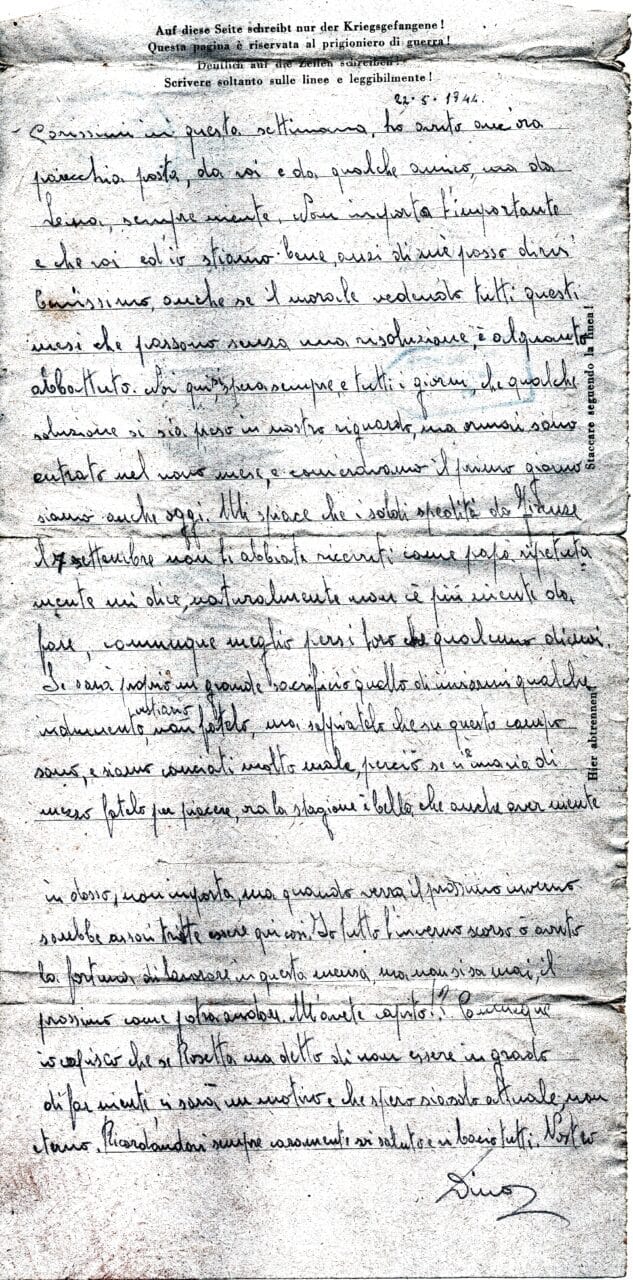 Auf diese Seite schreibt nur der Kriegsgefangene!
Questa pagina è riservata al prigioniero di guerra!
Deutlich auf die Zeilen schreiben!
Scrivere soltanto sulle linee e leggibilmente!
22.5.1944.
Carissimi in questa settimana, ho avuto anc'ora
parecchia posta, da voi e da qualche amico, ma da
Lena, sempre niente. Non importa l'importante
e che voi ed'io stiamo bene, anzi di mè posso dirvi
benissimo, anche se il morale vedendo tutti questi
mesi che passono senza una risoluzione, è alquanto
abbattuto. Noi qui, si spera sempre, e tutti i giorni, che qualche
soluzione si sia preso in nostro riguardo, ma ormai sono
entrato nel nono mese, e come eravamo il primo giorno
siamo anche oggi. Mi spiace che i soldi spediti da Firense
il 7 settembre non li abbiate ricevuti come papà ripetuta
mente mi dice, naturalmente non c'è più niente da
fare, comunque meglio persi loro che qualcuno di noi.
Se sarà proprio un grande sacrificio quello di inviarmi qualche
indumento, vestiario, non fatelo, ma sappiatelo che in questo campo
sono, e siamo conciati molto male, perciò se c'è maria di
mezzo fatelo per piacere, ora la stagione è bella, che anche aver niente
in dosso, non importa, ma quando verrà il prossimo inverno
sarebbe assai triste essere qui così. Io tutto l'inverno scorso ò avuto
la fortuna di lavorare in questa mensa, ma non si sa mai, il
prossimo come potrà andare. M'avete capito!? Comunque
io capisco che se Rosetta ma detto di non essere in grado
di far niente ci sarà un motivo e che spero sia solo attuale, non
eterno. Ricordandovi sempre caramente vi saluto e vi bacio tutti. Vostro
Dino
Staccare seguendo la linea!
Hier abtrennen!